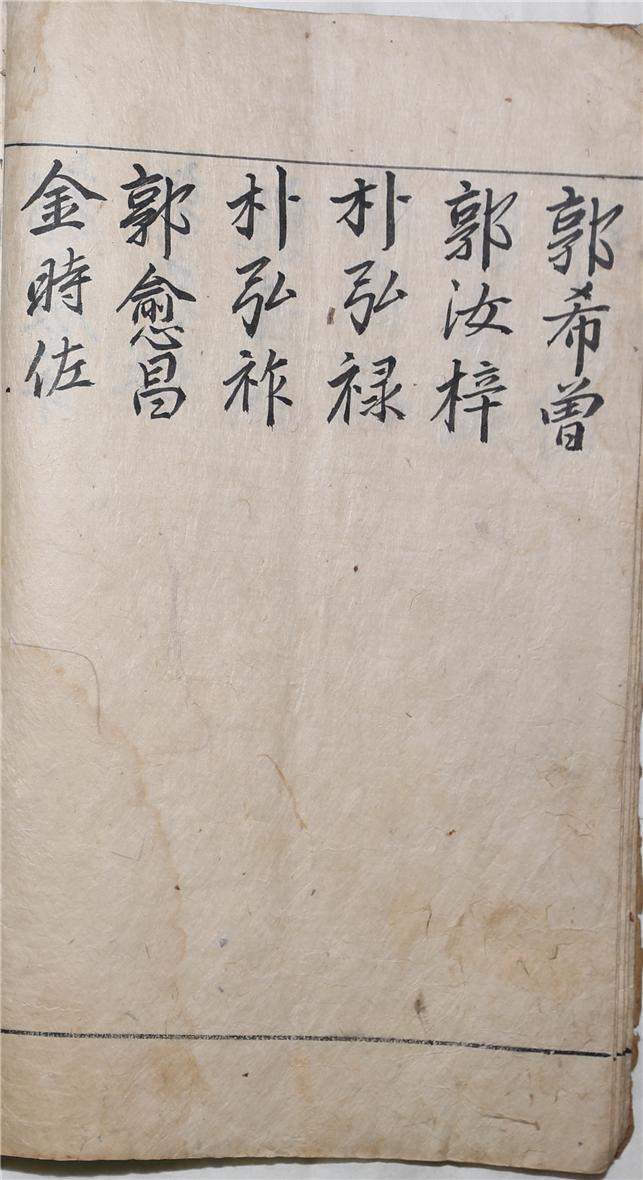 郭希曽
郭汝梓
朴弘禄
朴弘祚
郭愈昌
金時佐